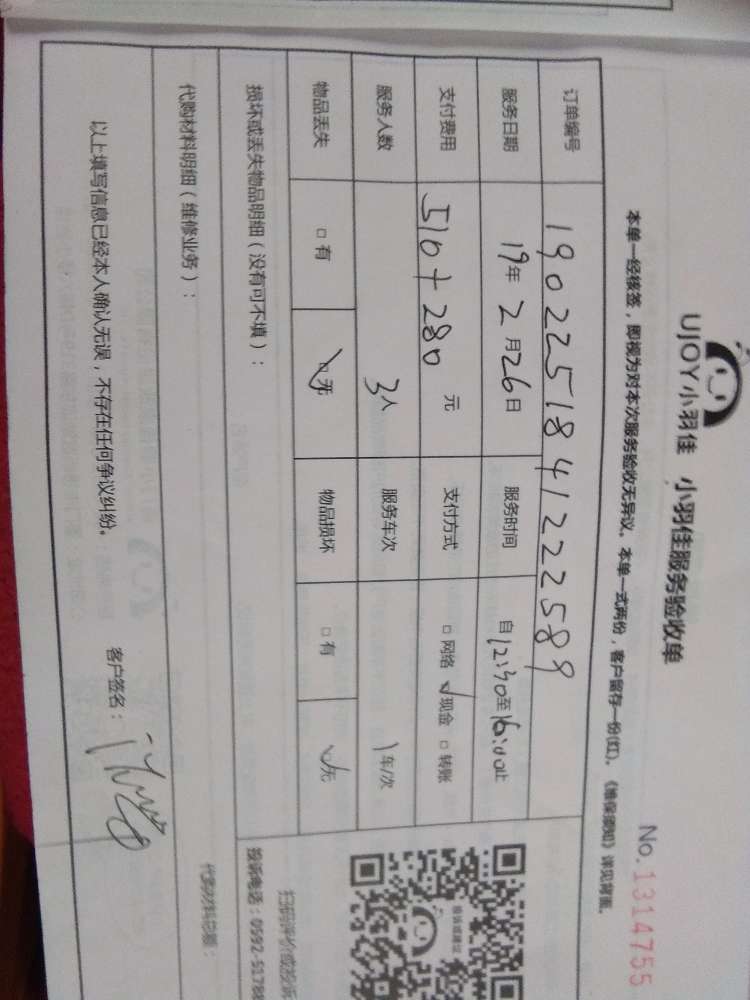 UJOY小羽佳 小羽佳服务验收单
No.1314755
本单一经核签，即视为对本次服务验收无异议。本单一式两份，客户留存一份(红)。《维保须知》详见背面。
订单编号 190225184122258９
服务日期 19年2月26日 服务时间 自12:30至16:00止
支付费用 510+280 元 支付方式 □网络 √现金 □转账
服务人数 3人 服务车次 1车/次
物品丢失 □有 √无 物品损坏 □有 √无
损坏或丢失物品明细（没有可不填）：
扫码评价或投诉
投诉电话：0592-51788
代购材料明细（维修业务）：
代购材料总额：
以上填写信息已经本人确认无误，不存在任何争议纠纷。
客户签名：